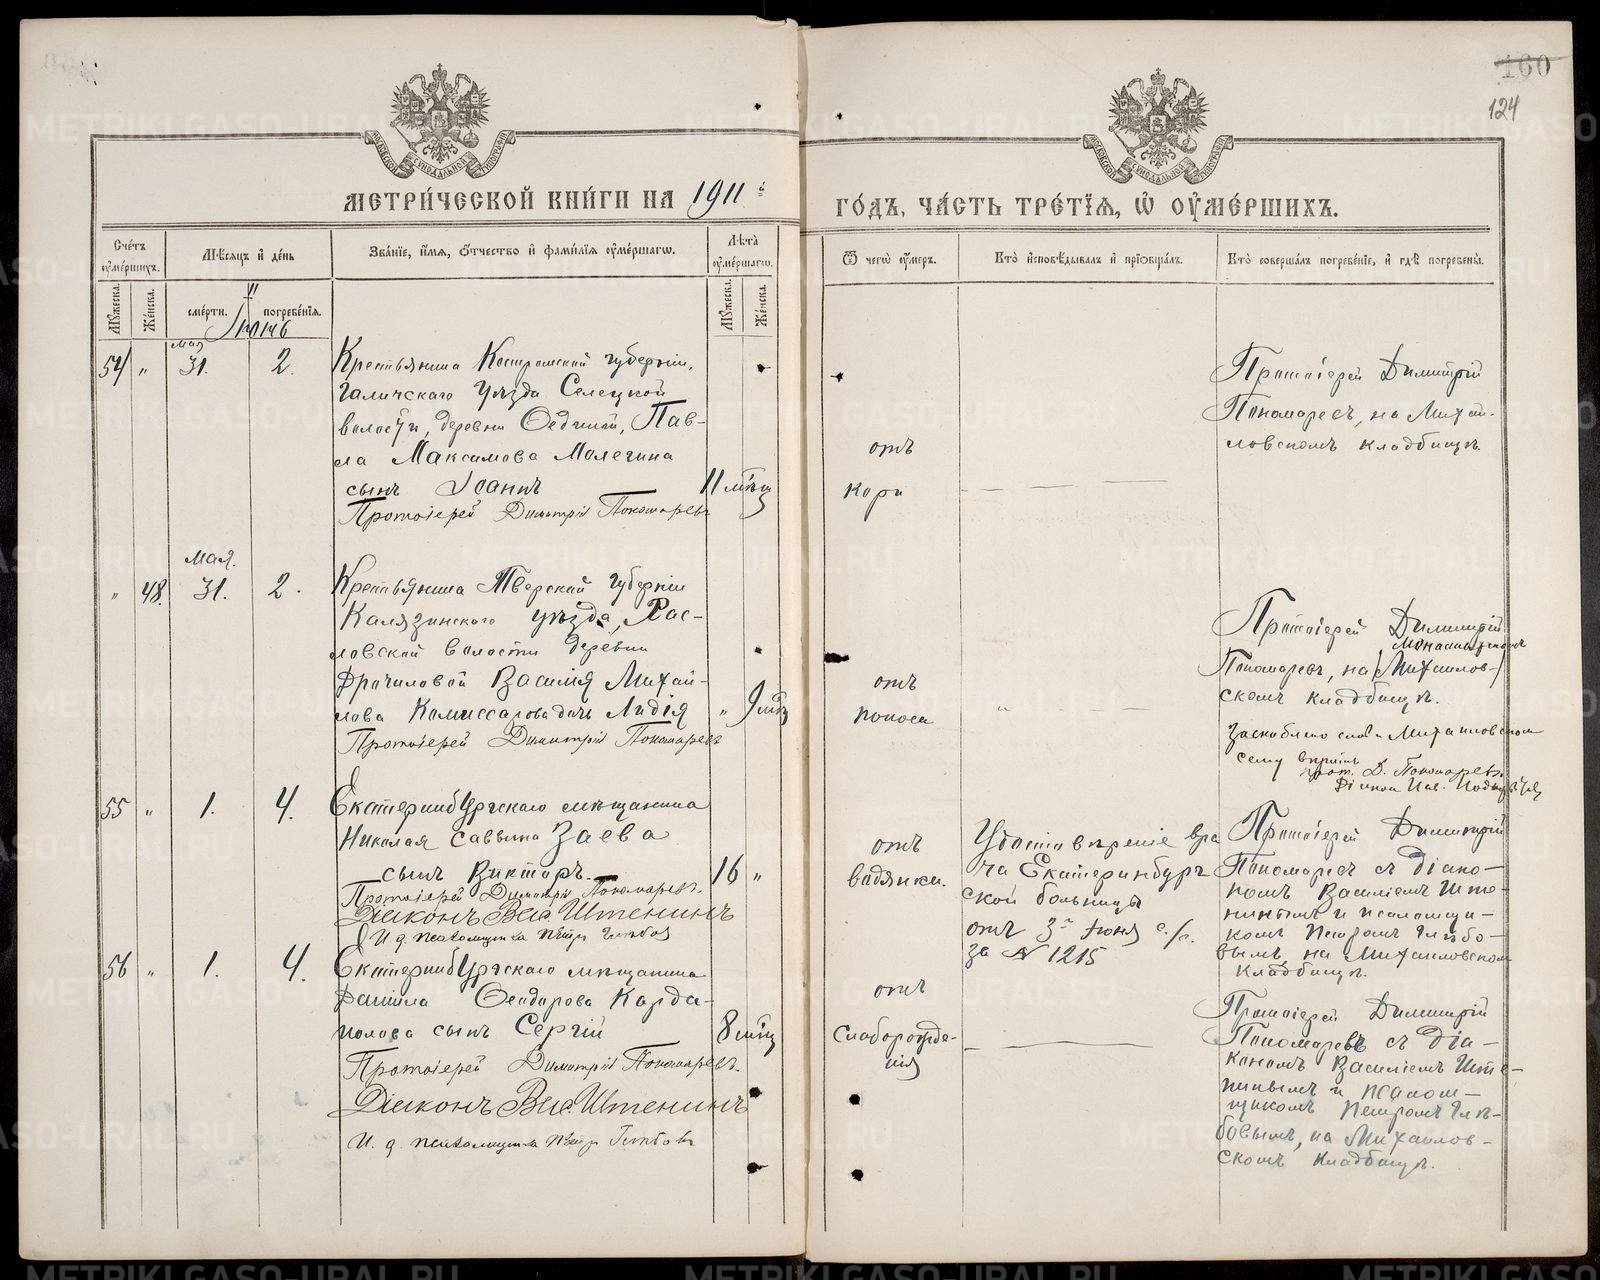 160
124
МЕТРИ́ЧЕСКОЙ КНИ́ГИ НА 1911 й
ГО́ДЪ, ЧА́СТЬ ТРЕ́ТІѦ, Ѡ ОУМЕ́РШИХЪ.
Счетъ оумершихъ.
Мѣсяцъ и день
Званіе, имя, отчество и фамилія оумершагѡ.
Лѣта оумершагѡ.
Ѿ чегѡ оумеръ.
Кто исповѣдывалъ и пріобщалъ.
Кто совершалъ погребеніе, и гдѣ погребены.
Мужеска.
Женска.
смерти.
погребенія.
Мужеска.
Женска.
VI
Іюнь
54
"
мая
31.
2.
Крестьянина Костромской губерніи,
Галичскаго уѣзда Селецкой
волости, деревни
Пав-
ла Максимова Молегина
сынъ Іоаннъ
11 мѣсц
Протоіерей Димитрій Пономаревъ
отъ
кори
Протоіерей Димитрій
Пономаревъ, на Михай-
ловскомъ кладбищѣ.
"
48.
мая.
31.
2.
Крестьянина Тверской губерніи
Калязинскаго уѣзда,
Рас-
ловской волости деревни
Фрочиловой Василія Михай-
лова Комиссарова дочь Лидія
"
9 мѣсц
Протоіерей Димитрій Пономаревъ
отъ
поноса
Протоіерей Димитрій
Пономаревъ, на (Михаилов-)
скомъ кладбищѣ.
Михайловском
прот. Д. Пономаревъ.
55
"
1.
4.
Екатеринбургскаго мѣщанина
Николая Саввина Заева
сынъ Викторъ.
16
"
Протоіерей Димитрій Пономаревъ.
Діаконъ Вас. Штенинъ
И. д. псаломщика Петръ Глѣбов
отъ
водянки.
Удостовѣреніе вра
ча Екатеринбург
ской больницы
отъ 3го іюня с/г.
за № 1215
Протоіерей Димитрій
Пономаревъ съ діако-
номъ ВасиліемъШте-
нинымъ и псаломщи-
комъ Петромъ Глѣбо-
вымъ, на Михаиловском
кладбищѣ.
56
"
1.
4.
Екатеринбургскаго мѣщанина
Даніила Ѳеодорова Карда-
полова сынъ Сергій
8 мѣсц
Протоіерей Димитрій Пономаревъ.
Діаконъ Вас. Штенинъ
И. д. псаломщика Петръ Глѣбовъ
отъ
слаборожде-
нія
Протоіерей Димитрій
Пономаревъ съ діа-
кономъ Василіемъ Ште-
нинымъ и псалом-
щикомъ Петромъ Глѣ-
бовымъ, на Михаилов-
скомъ кладбищѣ.
METRIKI.GASO-URAL.RU